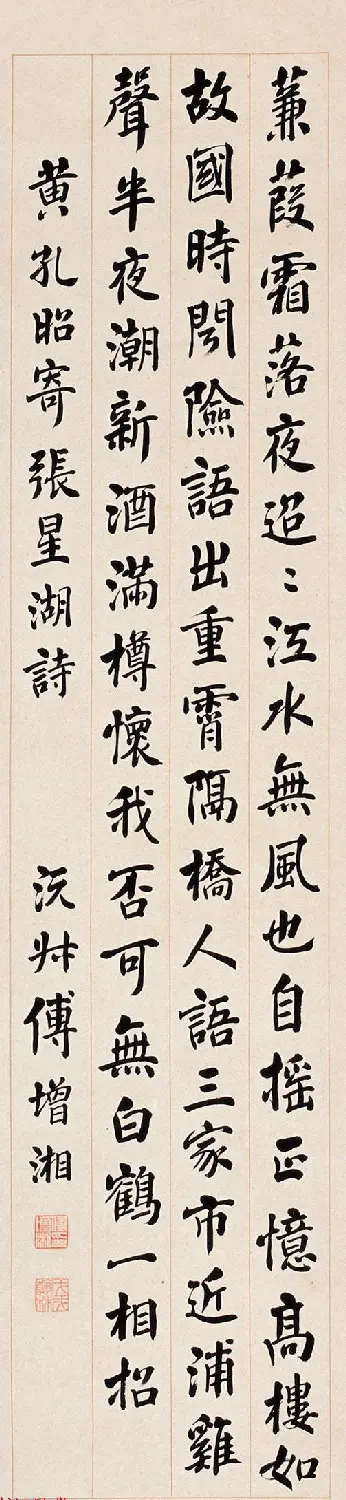 蒹葭霜落夜迢〻江水無風也自摇正憶髙樓如
故國時聞險語出重霄隔橋人語三家市近浦雞
聲半夜潮新酒滿樽懷我否可無白鶴一相招
黄孔昭寄張星湖詩 沅叔傅增湘